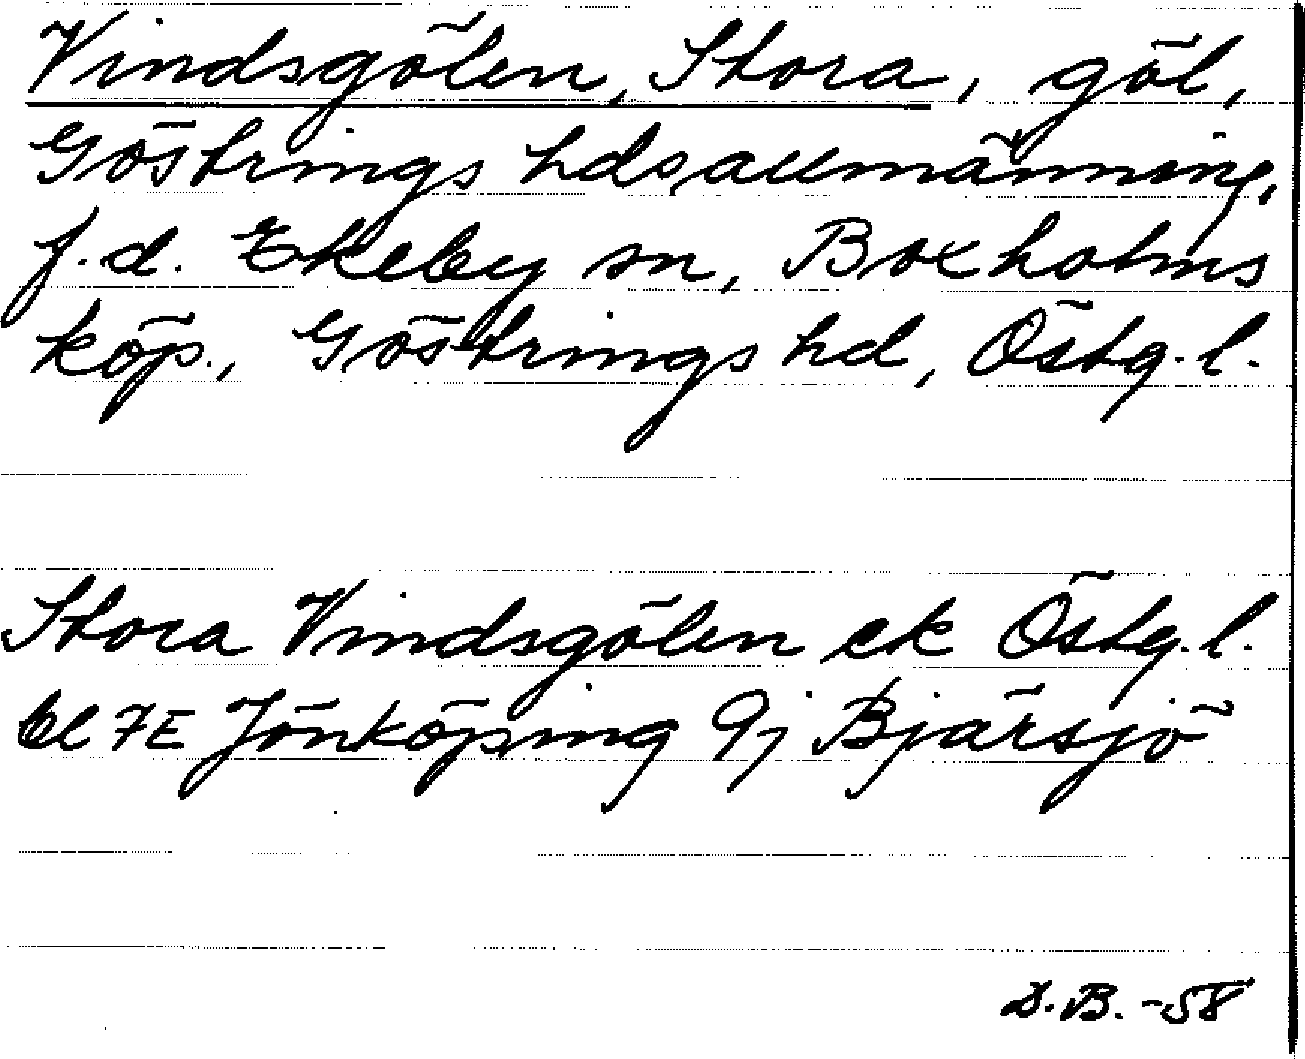 Vindsgölen, Stora, göl,
Göstrings hdsallmänning,
f.d. Ekeby sn, Boxholms
köp., Göstrings hd, Östg.l.
Stora Vindsgölen ek Östg.l.
bl 7E Jönköping 9j Bjärsjö
D.B. -58